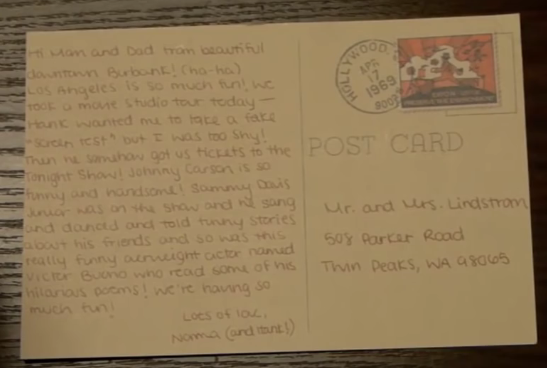 Hi Mom and Dad from beautiful
downtown Burbank! (ha-ha)
Los Angeles is so much fun! We
took a movie studio tour today —
Hank wanted me to take a fake
"screen test" but I was too shy!
Then he somehow got us tickets to the
Tonight Show! Johnny Carson is so
funny and handsome! Sammy Davis
Junior was on the show and he sang
and danced and told funny stories
about his friends and so was this
really funny overweight actor named
Victor Buono who read some of his
hilarious poems! We're having so
much fun!
Lots of love,
Norma (and Hank!)
HOLLYWOOD,
APR
17
1969
POST CARD
Mr. and Mrs. Lindstrom
508 Parker Road
Twin Peaks, WA 98065